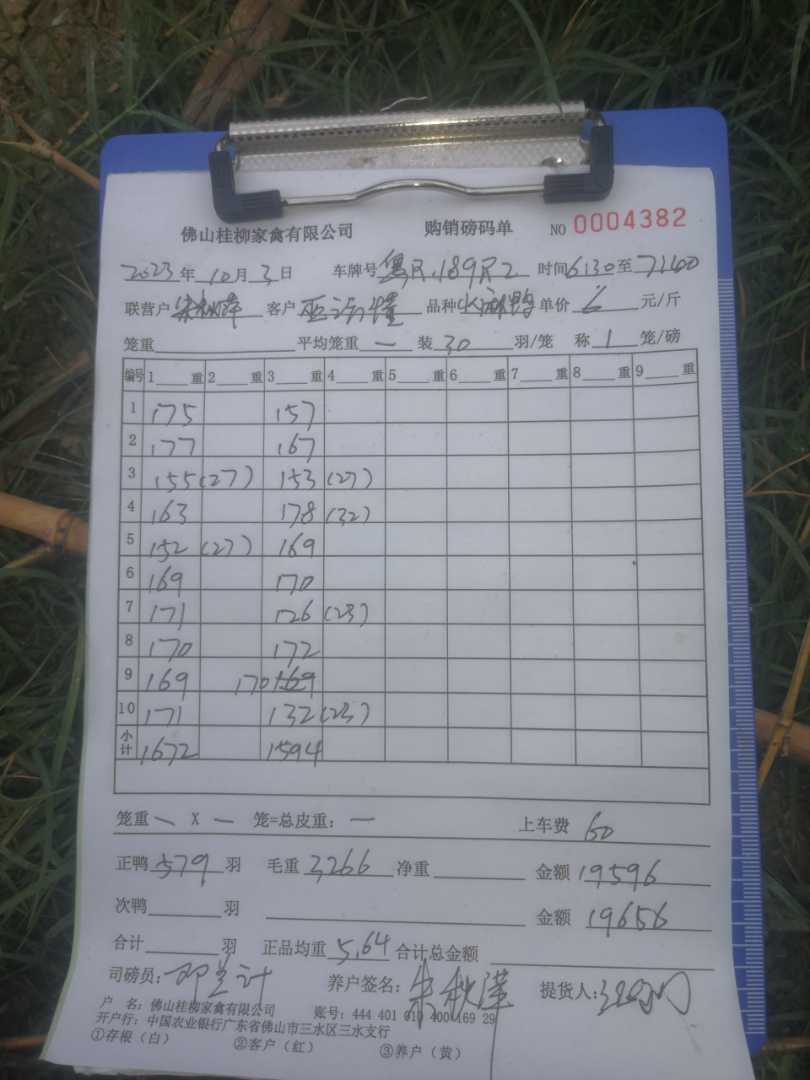 佛山桂柳家禽有限公司 购销磅码单 NO 0004382
2023年10月3日 车牌号 时间6:30至7:40
联营户 客户 品种 单价6元/斤
笼重 平均笼重— 装30羽/笼 称1笼/磅
编号 1 重 2 重 3 重 4 重 5 重 6 重 7 重 8 重 9 重
1 175 157
2 177 167
3 155(27) 153(27)
4 163 178(32)
5 152(27) 169
6 169 170
7 171 126(23)
8 170 172
9 169 170
10 171 132(23)
小计 1672 1594
笼重— X — 笼=总皮重：— 上车费 60
正鸭579羽 毛重3266 净重 金额19596
次鸭 羽 金额19656
合计 羽 正品均重5.64 合计总金额
司磅员： 养户签名： 提货人：
户 名：佛山桂柳家禽有限公司 账号：444 401 010 400 169 29
开户行：中国农业银行广东省佛山市三水区三水支行
①存根（白） ②客户（红） ③养户（黄）